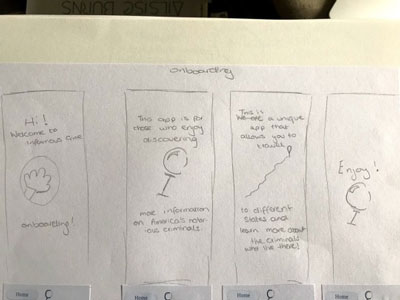 onboarding
Hi!
Welcome to
onboarding!
This app is for
those who enjoy
discovering
more information
on America's notor-
ious criminals
This is
a unique
app that
allows you to
to different
states and
learn more about
the criminals
who live there!
Enjoy!
Home
Home
Home
Home